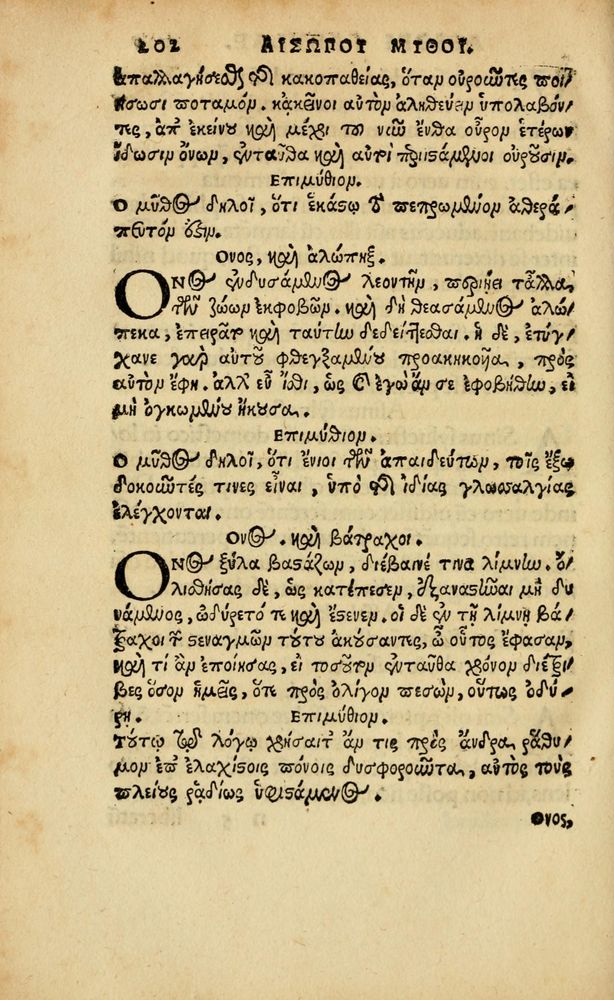 202 ΑΙΣΩΠΟΥ ΜΥΘΟΙ.
ἀπαλλαγήσεσθε τῆς κακοπαθείας, ὅταν οὐροῦντες ποι/
ήσωσι ποταμόν. κἀκεῖνοι αὐτὸν ἀληθεύειν ὑπολαβόν/
τες, ἀπ' ἐκείνου καὶ μέχρι τοῦ νῦν ἔνθα οὖρον ἑτέρων
ἴδωσιν ὄνων, ἐνταῦθα καὶ αὐτοὶ περιϊστάμενοι οὐροῦσιν.
Επιμύθιον.
Ο μῦθος δηλοῖ, ὅτι ἑκάστῳ τὸ πεπρωμένον ἀθερά/
πευτόν ἐστιν.
Ονος, καὶ ἀλώπηξ.
ΟΝος ἐνδυσάμενος λεοντῆν, περιῄει τἆλλα
τῶν ζώων ἐκφοβῶν. καὶ δὴ θεασάμενος ἀλώ/
πεκα, ἐπειρᾶτο καὶ ταύτην δεδείττεσθαι. ἡ δὲ, ἐτύγ/
χανε γὰρ αὐτοῦ φθεγξαμένου προακηκοῦα, πρὸς
αὐτὸν ἔφη. ἀλλ' εὖ ἴσθι, ὡς καὶ ἐγὼ ἄν σε ἐφοβήθην, εἰ
μὴ ὀγκωμένου ἤκουσα.
Επιμύθιον.
Ο μῦθος δηλοῖ, ὅτι ἔνιοι τῶν ἀπαιδεύτων, τοῖς ἔξω
δοκοῦντές τινες εἶναι, ὑπὸ τῆς ἰδίας γλωσσαλγίας
ἐλέγχονται.
Ονος. καὶ βάτραχοι.
ΟΝος ξύλα βαστάζων, διέβαινέ τινα λίμνην. ὀ/
λισθήσας δὲ, ὡς κατέπεσεν, ἐξαναστῆναι μὴ δυ
νάμενος, ὠδύρετό τε καὶ ἔστενεν. οἱ δὲ ἐν τῇ λίμνῃ βά/
τραχοι τῶν στεναγμῶν τούτου ἀκούσαντες, ὦ οὗτος ἔφασαν,
καὶ τί ἂν ἐποίησας, εἰ τοσοῦτον ἐνταῦθα χρόνον διέτρι/
βες ὅσον ἡμεῖς, ὅτε πρὸς ὀλίγον πεσὼν, οὕτως ὀδύ/
ρῃ. Επιμύθιον.
Τούτῳ τῷ λόγῳ χρήσαιτ' ἄν τις πρὸς ἄνδρα ῥάθυ/
μον ἐπ' ἐλαχίστοις πόνοις δυσφοροῦντα, αὐτὸς τοὺς
πλείους ῥαδίως ὑφιστάμενος.
Ονος,